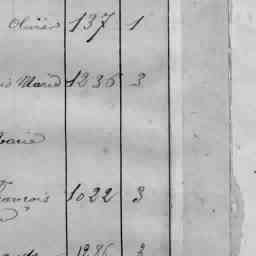 Olivier 137 1
Marie 1236 3
Marie
François 1022 3
1286 3